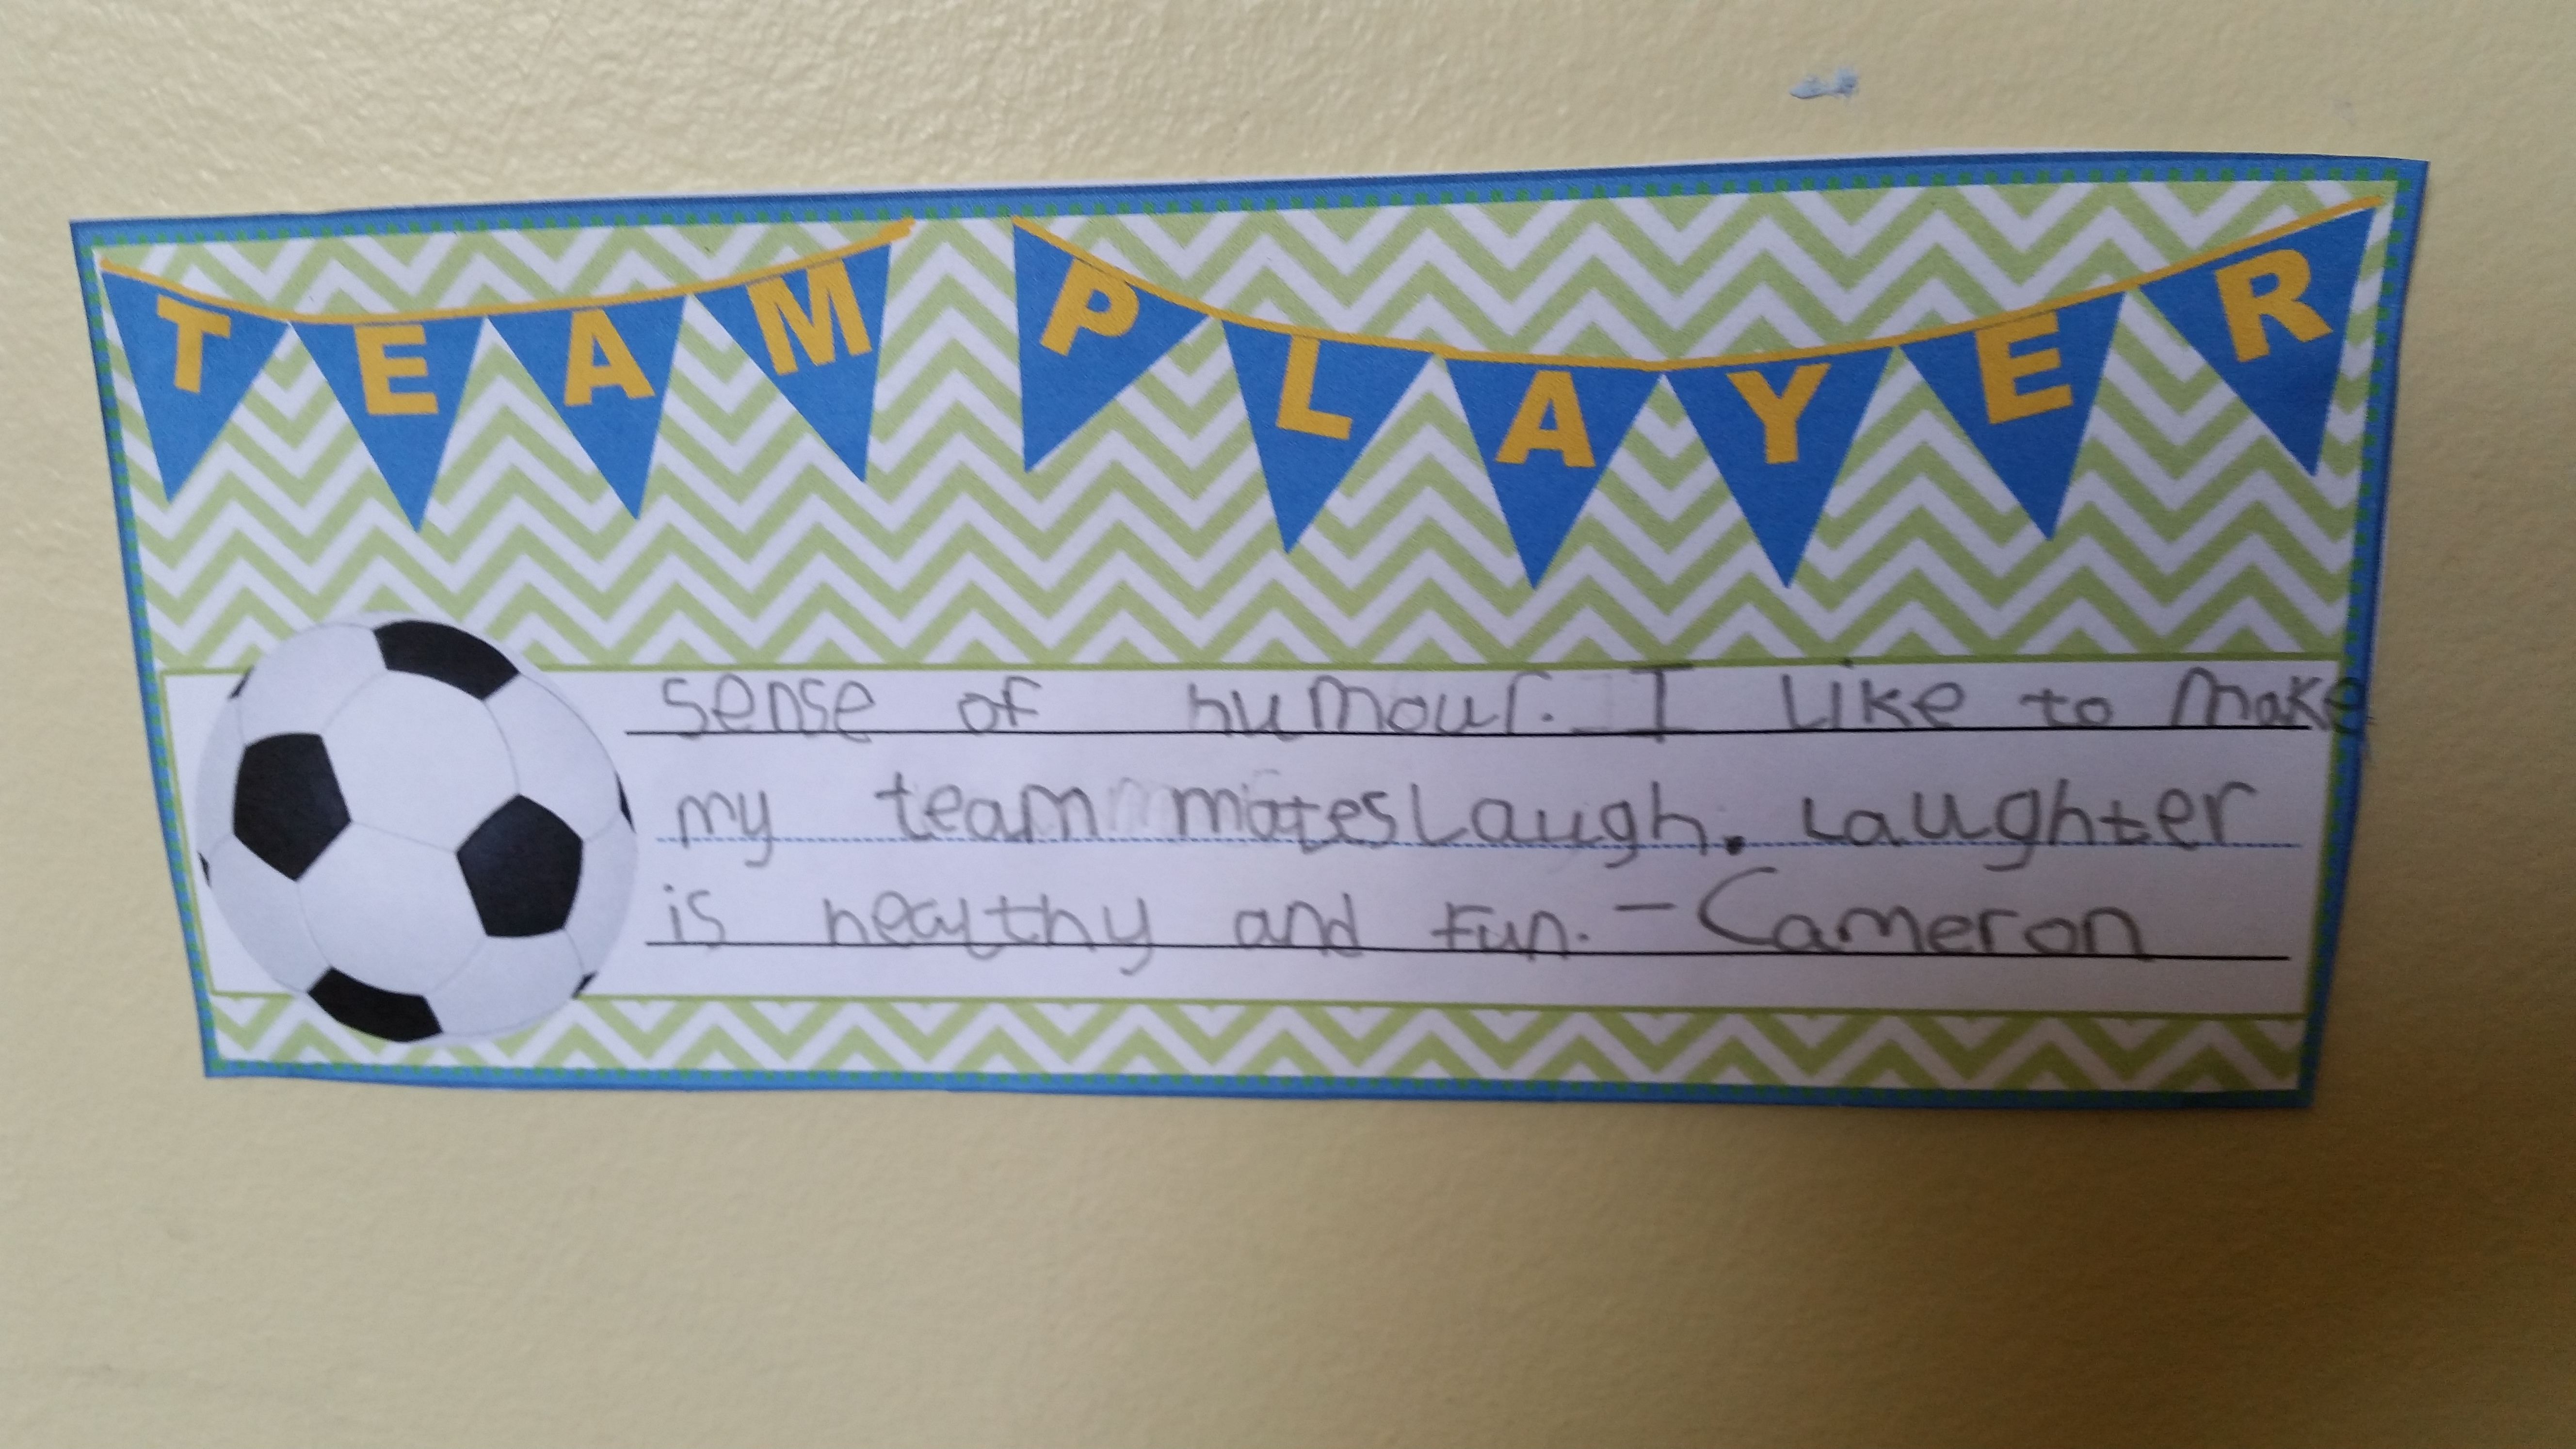 TEAM PLAYER
sense of humour. I like to make
my team mates Laugh. Laughter
is healthy and fun. - Cameron